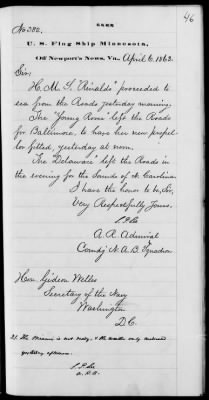 46
No 282.
U. S. Flag Ship Minnesota,
Off Newport's News, Va., April 6, 1863.
Sir:
H. M. S. "Rinaldo" proceeded to
sea from the Roads yesterday morning.
The "Young Rover" left the Roads
for Baltimore, to have her new propel-
lor fitted, yesterday at noon.
The "Delaware" left the Roads in
the evening for the Sounds of N. Carolina.
I have the honor to be, Sir,
Very Respectfully Yours,
S. P. Lee
A. R. Admiral
Comdg N. A. B. Squadron
Hon. Gideon Welles
Secretary of the Navy
Washington
D.C.
The is not ready, & the only
yesterday afternoon.
S. P. Lee
A. R. A.